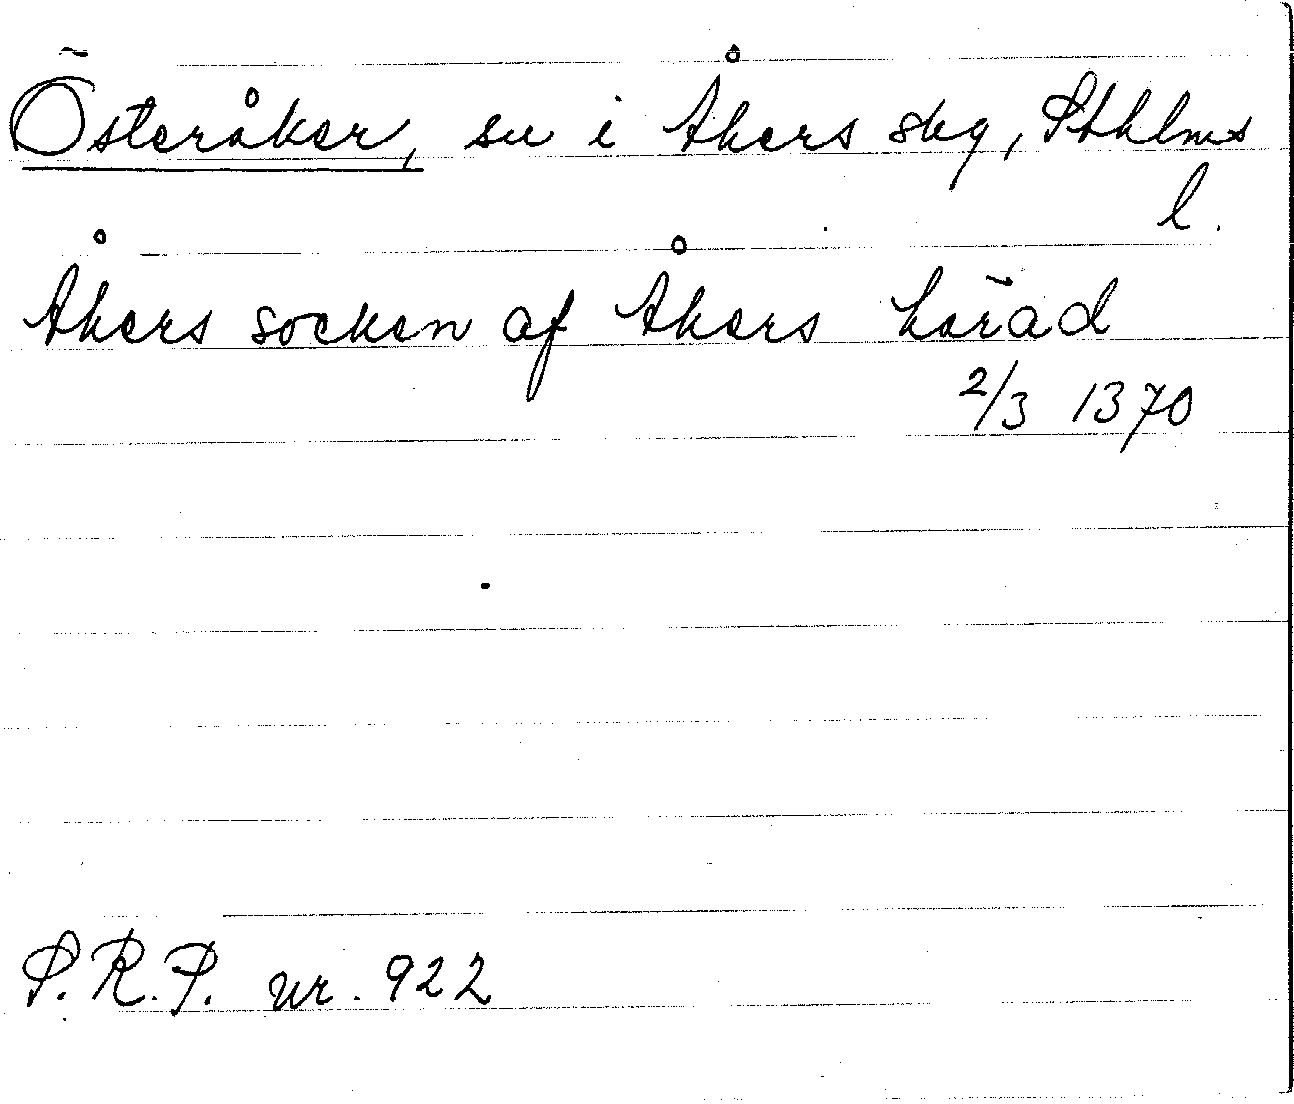 Österåker, sn i Åkers skg, Sthlms
l.
Åkers socken af Åkers häräd
2/3 1370
S.R.P. nr. 922